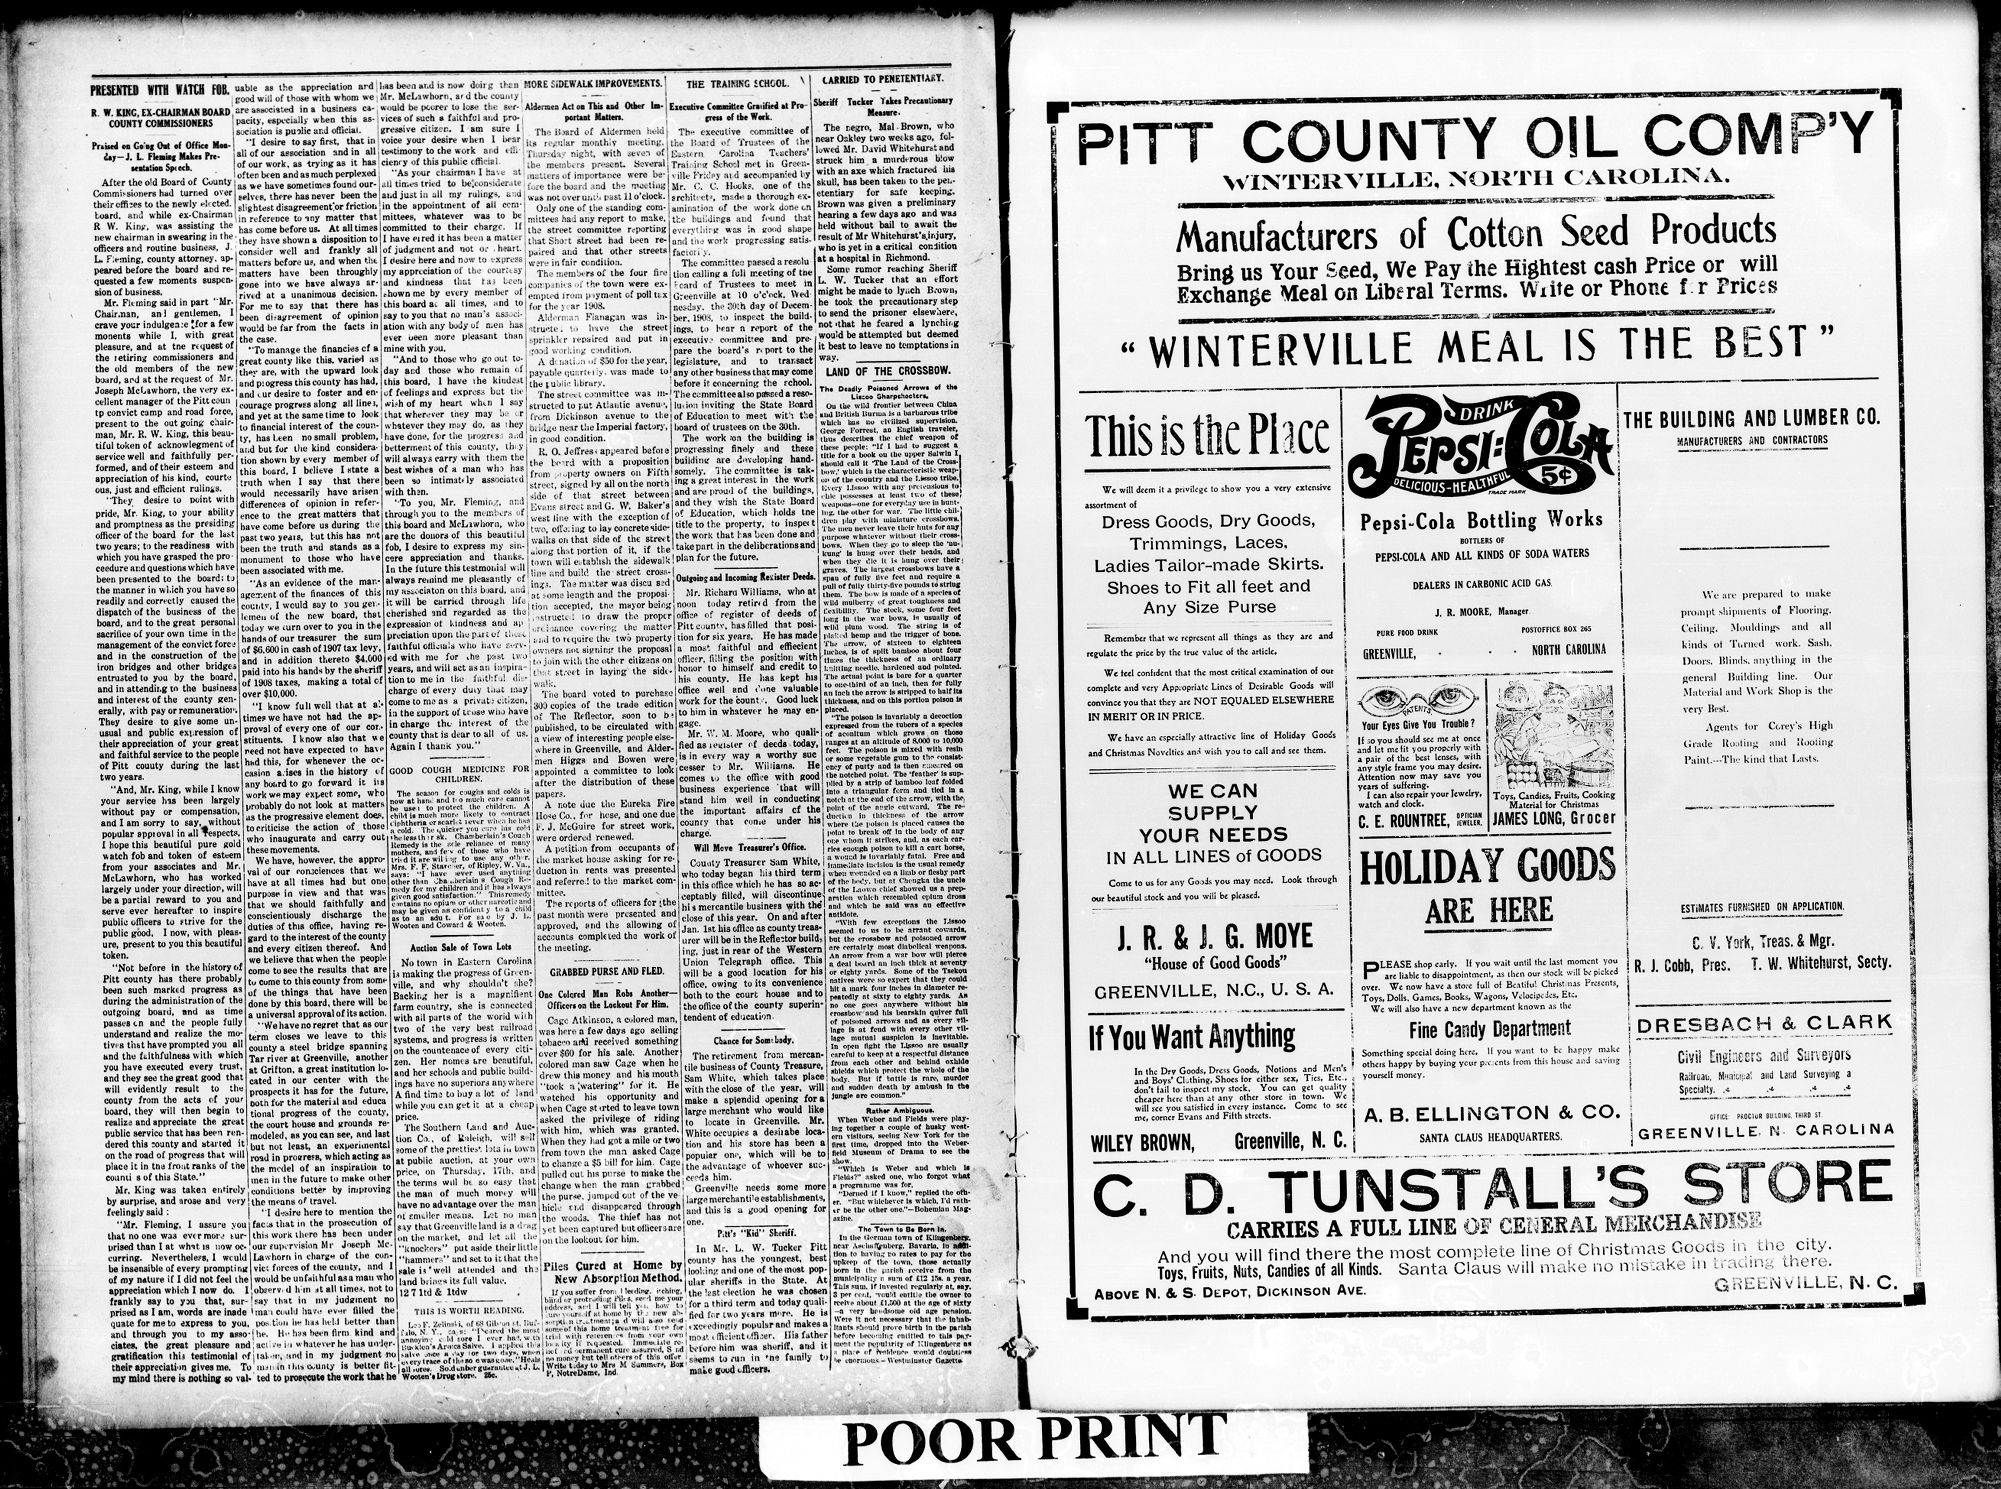 PRESENTED WITH WATCH FOB.
R. W. KING, EX-CHAIRMAN BOARD
COUNTY COMMISSIONERS
Praised on Going Out of Office Mon-
day—J. L. Fleming Makes Pre-
sentation Speech.
After the old Board of County
Commissioners had turned over
their offices to the newly elected
board, and while ex-Chairman
R W. King, was assisting the
new chairman in swearing in the
officers and routine business, J.
L. Fleming, county attorney, ap-
peared before the board and re-
quested a few moments suspen-
sion of business.
Mr. Fleming said in part "Mr.
Chairman, and gentlemen, I
crave your indulgence for a few
moments while I, with great
pleasure, and at the request of
the retiring commissioners and
the old members of the new
board, and at the request of Mr.
Joseph McLawhorn, the very ex-
cellent manager of the Pitt coun
ty convict camp and road force,
present to the out going chair-
man, Mr. R. W. King, this beau-
tiful token of acknowlegment of
service well and faithfully per-
formed, and of their esteem and
appreciation of his kind, courte
ous, just and efficient rulings.
"They desire to point with
pride, Mr. King, to your ability
and promptness as the presiding
officer of the board for the last
two years; to the readiness with
which you have grasped the pro-
ceedure and questions which have
been presented to the board; to
the manner in which you have so
readily and correctly caused the
dispatch of the business of the
board, and to the great personal
sacrifice of your own time in the
management of the convict force
and in the construction of the
iron bridges and other bridges
entrusted to you by the board,
and in attending to the business
and interest of the county gen-
erally, with pay or remuneration.
They desire to give some un-
usual and public expression of
their appreciation of your great
and faithful service to the people
of Pitt county during the last
two years.
"And, Mr. King, while I know
your service has been largely
without pay or compensation,
and I am sorry to say, without
popular approval in all respects,
I hope this beautiful pure gold
watch fob and token of esteem
from your associates and Mr.
McLawhorn, who has worked
largely under your direction, will
be a partial reward to you and
serve ever hereafter to inspire
public officers to strive for the
public good. I now, with pleas-
ure, present to you this beautiful
token.
"Not before in the history of
Pitt county has there probably
been such marked progress as
during the administration of the
outgoing board, and as time
passes on and the people fully
understand and realize the mo-
tives that have prompted you all
and the faithfulness with which
you have executed every trust,
and they see the great good that
will evidently result to the
county from the acts of your
board, they will then begin to
realize and appreciate the great
public service that has been ren-
dered this county and started it
on the road of progress that will
place it in the front ranks of the
of this State."
Mr. King was taken entirely
by surprise, and arose and very
feelingly said:
"Mr. Fleming, I assure you
that no one was ever more sur-
prised than I at what is now oc-
curring. Nevertheless, I would
be insensible of every prompting
of my nature if I did not feel the
appreciation which I now do. I
frankly say to you that, sur-
prised as I am, words are inade
quate for me to express to you,
and through you to my asso-
ciates, the great pleasure and
gratification this testimonial of
their appreciation gives me. To
my mind there is nothing so val-
uable as the appreciation and
good will of those with whom we
are associated in a business ca-
pacity, especially when this as-
sociation is public and official.
"I desire to say first, that in
all of our association and in all
of our work, as trying as it has
often been and as much perplexed
as we have sometimes found our-
selves, there has never been the
slightest disagreement or friction
in reference to any matter that
has come before us. At all times
they have shown a disposition to
consider well and frankly all
matters before us, and when the
matters have been throughly
gone into we have always ar-
rived at a unanimous decision.
For me to say that there has
been disagreement of opinion
would be far from the facts in
the case.
"To manage the financies of a
great county like this, varied as
they are, with the upward look
and progress this county has had,
and our desire to foster and en-
courage progress along all lines,
and yet at the same time to look
to financial interest of the coun-
ty, has been no small problem,
and but for the kind considera-
tion shown by every member of
this board, I believe I state a
truth when I say that there
would necessarily have arisen
differences of opinion in refer-
ence to the great matters that
have come before us during the
past two years, but this has not
been the truth and stands as a
monument to those who have
been associated with me.
"As an evidence of the man-
agement of the finances of this
county, I would say to you gen-
lemen of the new board, that
today we turn over to you in the
hands of our treasurer the sum
of $6.600 in cash of 1907 tax levy,
and in addition thereto $4,000
paid into his hands by the sheriff
of 1908 taxes, making a total of
over $10,000.
"I know full well that at all
times we have not had the ap-
proval of every one of our con-
stituents. I know also that we
need not have expected to have
had this, for whenever the oc-
casion arises in the history of
any board to go forward it its
work we may expect some, who
probably do not look at matters
as the progressive element does,
to criticise the action of those
who inaugurate and carry out
these movements.
We have, however, the appro-
val of our consciences that we
have at all times had but one
purpose in view and that was
that we should faithfully and
conscientiously discharge the
duties of this office, having re-
gard to the interest of the county
and every citizen thereof. And
we believe that when the people
come to see the results that are
to come to this county from some
of the things that have been
done by this board, there will be
a universal approval of its action.
"We have no regret that as our
term closes we leave to this
county a steel bridge spanning
Tar river at Greenville, another
at Grifton, a great institution lo-
cated in our center with the
prospects it has for the future,
both for the material and educa
tional progress of the county,
the court house and grounds re-
modeled, as you can see, and last
but not least, an experimental
road in progress, which acting as
the model of an inspiration to
men in the future to make other
conditions better by improving
the means of travel.
"I desire here to mention the
facts that in the prosecution of
this work there has been under
our supervision Mr Joseph Mc-
Lawhorn in charge of the con-
vict forces of the county, and I
would be unfaithful as a man who
observed him at all times, not to
say that in my judgment no
man could have ever filled the
position he has held better than
he. He has been firm, kind and
active in whatever he has under-
taken, and in my judgment no
man in this county is better fit-
ted to prosecute the work that he
has been and is now doing than
Mr. McLawhorn, and the county
would be poorer to lose the ser-
vices of such a faithful and pro-
gressive citizen. I am sure I
voice your desire when I bear
testimony to the work and effi-
ciency of this public official.
"As your chairman I have at
all times tried to be considerate
and just in all my rulings, and
in the appointment of all com-
mittees, whatever was to be
committed to their charge. If
I have erred it has been a matter
of judgment and not of heart.
I desire here and now to express
my appreciation of the courtesy
and kindness that has been
shown me by every member of
this board at all times, and to
say to you that no man's associ-
ation with any body of men has
ever been more pleasant than
mine with you.
"And to those who go out to-
day and those who remain of
this board, I have the kindest
of feelings and express but the
wish of my heart when I say
that wherever they may be or
whatever they may do, as they
have done, for the progress and
betterment of this county, they
will always carry with them the
best wishes of a man who has
been so intimately associated
with them.
"To you, Mr. Fleming, and
through you to the members of
this board and McLawhorn, who
are the donors of this beautiful
fob, I desire to express my sin-
cere appreciation and thanks.
In the future this testimonial will
always remind me pleasantly of
my associaton on this board, and
it will be carried through life
cherished and regarded as the
expression of kindness and ap
preciation upon the part of these
faithful officials who have serv-
ed with me for the past two
years, and will act as an inspira-
tion to me in the faithful dis-
charge of every duty that may
come to me as a private citizen,
in the support of those who have
in charge the interest of the
county that is dear to all of us.
Again I thank you."
GOOD COUGH MEDICINE FOR
CHILDREN.
The season for coughs and colds is
now at hand and too much care cannot
be used to protect the children. A
child is much more likely to contract
diphtheria or scarlet fever when he has
a cold. The quicker you cure his cold
the less the risk. Chamberlain's Cough
Remedy is the sole reliance of many
mothers, and few of those who have
tried it are willing to use any other.
Mrs. F. F. Starcher, of Ripley, W. Va.,
says: "I have never used anything
other than Chamberlain's Cough Re-
medy for my children and it has always
given good satisfaction." This remedy
contains no opium or other narcotic and
may be given as confidently to a child
as to an adult. For sale by J. L.
Wooten and Coward & Wooten.
Auction Sale of Town Lots
No town in Eastern Carolina
is making the progress of Green-
ville, and why shouldn't she?
Backing her is a magnificent
farm country, she is connected
with all parts of the world with
two of the very best railroad
systems, and progress is written
on the countenace of every citi-
zen. Her homes are beautiful,
and her schools and public build-
ings have no superiors anywhere
A find time to buy a lot of land
while you can get it at a cheap
price.
The Southern Land and Auc-
tion Co., of Raleigh, will sell
some of the prettiest lots in town
at public auction, at your own
price, on Thursday, 17th, and
the terms will be so easy that
the man of much money will
have no advantage over the man
of smaller means. Let no man
say that Greenville land is a drag
on the market, and let all the
"knockers" put aside their little
"hammers" and set to it that the
sale is well attended and the
land brings its full value.
12 7 1td & 1tdw
THIS IS WORTH READING.
Leo F. Zelinski, of 68 Gibson st, Buf-
falo, N. Y., says: "I cured the most
annoying cold sore I ever had, with
Bucklen's Arnica Salve. I applied this
salve once a day for two days, when
every trace of the sore was gone." Heals
all sores. Sold under guarantee at J. L.
Wooten's Drug store. 25c.
MORE SIDEWALK IMPROVEMENTS.
Aldermen Act on This and Other Im-
portant Matters.
The Board of Aldermen held
its regular monthly meeting,
Thursday night, with seven of
the members present. Several
matters of importance were be-
fore the board and the meeting
was not over until past 11 o'clock.
Only one of the standing com-
mittees had any report to make,
the street committee reporting
that Short street had been re-
paired and that other streets
were in fair condition.
The members of the four fire
companies of the town were ex-
empted from payment of poll tax
for the year 1908.
Alderman Flanagan was in-
structed to have the street
sprinkler repaired and put in
good working condition.
A donation of $50 for the year,
payable quarterly, was made to
the public library.
The street committee was in-
structed to put Atlantic avenue,
from Dickinson avenue to the
bridge near the Imperial factory,
in good condition.
R. O. Jeffress appeared before
the board with a proposition
from property owners on Fifth
street, signed by all on the north
side of that street between
Evans street and G. W. Baker's
west line with the exception of
two, offering to lay concrete side-
walks on that side of the street
along that portion of it, if the
town will establish the sidewalk
line and build the street cross-
ings. The matter was discussed
at some length and the proposi-
tion accepted, the mayor being
instructed to draw the proper
ordinance covering the matter
and to require the two property
owners not signing the proposal
to join with the other citizans on
that street in laying the side-
walk.
The board voted to purchase
300 copies of the trade edition
of The Reflector, soon to be
published, to be circulated with
a view of interesting people else-
where in Greenville, and Alder-
men Higgs and Bowen were
appointed a committee to look
after the distribution of these
papers.
A note due the Eureka Fire
Hose Co., for hose, and one due
F. J. McGuire for street work,
were ordered renewed.
A petition from occupants of
the market house asking for re-
duction in rents was presented
and referred to the market com-
mittee.
The reports of officers for the
past month were presented and
approved, and the allowing of
accounts completed the work of
the meeting.
GRABBED PURSE AND FLED.
One Colored Man Robs Another—
Officers on the Lookout For Him.
Cage Atkinson, a colored man,
was here a few days ago selling
tobacco and received something
over $60 for his sale. Another
colored man saw Cage when he
drew this money and his mouth
"took a watering" for it. He
watched his opportunity and
when Cage started to leave town
asked the privilege of riding
with him, which was granted.
When they had got a mile or two
from town the man asked Cage
to change a $5 bill for him. Cage
pulled out his purse to make the
change when the man grabbed
the purse, jumped out of the ve
hicle and disappeared through
the woods. The thief has not
yet been captured but officers are
on the lookout for him.
Piles Cured at Home by
New Absorption Method.
If you suffer from bleeding, itching,
blind or protruding Piles, send me your
address, and I will tell you how to
cure yourself at home by the new ab-
sorption treatment; and will also send
some of this home treatment free for
trial with references from your own
locality if requested. Immediate re-
lief and permanent cure assured. Send
no money but tell others of this offer
Write today to Mrs M Summers, Box
P, NotreDame, Ind.
THE TRAINING SCHOOL.
Executive Committee Gratified at Pro-
gress of the Work.
The executive committee of
the Board of Trustees of the
Eastern Carolina Teachers'
Training School met in Green-
ville Friday and accompanied by
Mr. C. C. Hooks, one of the
architects, made a thorough ex-
amination of the work done on
the buildings and found that
everything was in good shape
and the work progressing satis-
factorily.
The committee passed a resolu
tion calling a full meeting of the
Board of Trustees to meet in
Greenville at 10 o'clock, Wed-
nesday, the 30th day of Decem-
ber, 1908, to inspect the build-
ings, to hear a report of the
executive committee and pre-
pare the board's report to the
legislature, and to transact
any other business that may come
before it concerning the school.
The committee also passed a reso-
lution inviting the State Board
of Education to meet with the
board of trustees on the 30th.
The work on the building is
progressing finely and these
building are developing hand-
somely. The committee is tak-
ing a great interest in the work
and are proud of the buildings,
and they wish the State Board
of Education, which holds the
title to the property, to inspect
the work that has been done and
take part in the deliberations and
plan for the future.
Outgoing and Incoming Register Deeds.
Mr. Richard Williams, who at
noon today retired from the
office of register of deeds of
Pitt county, has filled that posi-
tion for six years. He has made
a most faithful and effiecient
officer, filling the position with
honor to himself and credit to
his county. He has kept his
office well and done valuable
work for the county. Good luck
to him in whatever he may en-
gage.
Mr. W. M. Moore, who quali-
fied as register of deeds today,
is in every way a worthy suc
cesser to Mr. Williams. He
comes to the office with good
business experience that will
stand him well in conducting
the important affairs of the
county that come under his
charge.
Will Move Treasurer's Office.
County Treasurer Sam White,
who today began his third term
in this office which he has so ac-
ceptably filled, will discontinue
his mercantile business with the
close of this year. On and after
Jan. 1st his office as county treas-
urer will be in the Reflector build-
ing, just in rear of the Western
Union Telegraph office. This
will be a good location for his
office, owing to its convenience
both to the court house and to
the office of the county superin-
tendent of education.
Chance for Somebody.
The retirement from mercan-
tile business of County Treasurer,
Sam White, which takes place
with the close of the year, will
make a splendid opening for a
large merchant who would like
to locate in Greenville. Mr.
White occupies a desirabe loca-
tion and his store has been a
populer one, which will be to
the advantage of whoever suc-
ceeds him.
Greenville needs some more
large merchantile establishments,
and this is a good opening for
one.
Pitt's "Kid" Sheriff.
In Mr. L. W. Tucker Pitt
county has the youngest, best
looking and one of the most pop-
ular sheriffs in the State. At
the last election he was chosen
for a third term and today quali-
fied for two years more. He is
exceedingly popular and makes a
most efficient officer. His father
before him was sheriff, and it
seems to run in the family to
make good officers.
CARRIED TO PENETENTIARY.
Sheriff Tucker Takes Precautionary
Measure.
The negro, Mal Brown, who
near Oakley two weeks ago, fol-
lowed Mr. David Whitehurst and
struck him a murderous blow
with an axe which fractured his
skull, has been taken to the pen-
etentiary for safe keeping.
Brown was given a preliminary
hearing a few days ago and was
held without bail to await the
result of Mr Whitehurst's injury,
who is yet in a critical condition
at a hospital in Richmond.
Some rumor reaching Sheriff
L. W. Tucker that an effort
might be made to lynch Brown,
he took the precautionary step
to send the prisoner elsewhere,
not that he feared a lynching
would be attempted but deemed
it best to leave no temptations in
way.
LAND OF THE CROSSBOW.
The Deadly Poisoned Arrows of the
Lissoo Sharpshooters.
On the wild frontier between China
and British Burma is a barbarous tribe
which has no civilized supervision.
George Forrest, an English traveler,
thus describes the chief weapon of
these people: "If I had to suggest a
title for a book on the upper Salwin I
should call it 'The Land of the Cross-
bow,' which is the characteristic weap-
on of the country and the Lissoo tribe.
Every Lissoo with any pretensions to
chic possesses at least two of these
weapons—one for everyday use in hunt-
ing, the other for war. The little chil-
dren play with miniature crossbows.
The men never leave their huts for any
purpose whatever without their cross-
bows. When they go to sleep the 'nu-
kung' is hung over their heads, and
when they die it is hung over their
graves. The largest crossbows have a
span of fully five feet and require a
pull of fully thirty-five pounds to string
them. The bow is made of a species of
wild mulberry of great toughness and
flexibility. The stock, some four feet
long in the war bows, is usually of
wild plum wood. The string is of
plaited hemp and the trigger of bone.
The arrow, of sixteen to eighteen
inches, is of split bamboo about four
times the thickness of an ordinary
knitting needle, hardened and pointed.
The actual point is bare for a quarter
to one-third of an inch, then for fully
an inch the arrow is stripped to half its
thickness, and on this portion poison is
placed.
"The poison is invariably a decoction
expressed from the tubers of a species
of aconitum which grows on those
ranges at an altitude of 8,000 to 10,000
feet. The poison is mixed with resin
or some vegetable gum to the consist-
ency of putty and is then smeared on
the notched point. The 'feather' is sup-
plied by a strip of bamboo leaf folded
into a triangular form and tied in a
notch at the end of the arrow, with the
point of the angle outward. The re-
duction in thickness of the arrow
where the poison is placed causes the
point to break off in the body of any
one whom it strikes, and, as each car-
ries enough poison to kill a cart horse,
a wound is invariably fatal. Free and
immediate incision is the usual remedy
when wounded on a limb or fleshy part
of the body, but at Chengka the uncle
of the Laowo chief showed us a prep-
aration which resembled opium dross
and which he said was an effective
antidote.
"With few exceptions the Lissoo
seemed to us to be arrant cowards,
but the crossbow and poisoned arrow
are certainly most diabolical weapons.
An arrow from a war bow will pierce
a deal board an inch thick at seventy
or eighty yards. Some of the Tsekou
natives were so expert that they could
hit a mark four inches in diameter re-
peatedly at sixty to eighty yards. As
no one goes anywhere without his
crossbow and his bearskin quiver full
of poisoned arrows and as every vil-
lage is at feud with every other vil-
lage mutual suspicion is inevitable.
In open fight the Lissoo are usually
careful to keep at a respectful distance
from each other and behind oxhide
shields which protect the whole of the
body. But if battle is rare, murder
and sudden death by ambush in the
jungle are common."
Rather Ambiguous.
When Weber and Fields were play-
ing together a couple of husky west-
ern visitors, seeing New York for the
first time, dropped into the Weber-
field Museum of Drama to see the
show.
"Which is Weber and which is
Fields?" asked one, who forgot what
a programme was for.
"Derned if I know," replied the oth-
er. "But whichever is which, I'd rath-
er be the other one."—Bohemian Mag-
azine.
The Town to Be Born In.
In the German town of Klingenberg,
near Aschaffenberg, Bavaria, in addi-
tion to having no rates to pay for the
upkeep of the town, those actually
born in the parish receive from the
municipality a sum of £12 15s. a year.
This sum, if invested regularly at, say,
3 per cent, would entitle the owner to
receive about £1,500 at the age of sixty
—a very handsome old age pension.
Were it not necessary that the inhab-
itants should prove birth in the parish
before becoming entitled to this pay-
ment the popularity of Klingenberg as
a place of residence would doubtless
be enormous.—Westminster Gazette.
PITT COUNTY OIL COMP'Y
WINTERVILLE, NORTH CAROLINA.
Manufacturers of Cotton Seed Products
Bring us Your Seed, We Pay the Hightest cash Price or will
Exchange Meal on Liberal Terms. Write or Phone for Prices
"WINTERVILLE MEAL IS THE BEST"
This is the Place
We will deem it a privilege to show you a very extensive
assortment of
Dress Goods, Dry Goods,
Trimmings, Laces,
Ladies Tailor-made Skirts.
Shoes to Fit all feet and
Any Size Purse
Remember that we represent all things as they are and
regulate the price by the true value of the article.
We feel confident that the most critical examination of our
complete and very Appropriate Lines of Desirable Goods will
convince you that they are NOT EQUALED ELSEWHERE
IN MERIT OR IN PRICE.
We have an especially attractive line of Holiday Goods
and Christmas Novelties and wish you to call and see them.
WE CAN
SUPPLY
YOUR NEEDS
IN ALL LINES of GOODS
Come to us for any Goods you may need. Look through
our beautiful stock and you will be pleased.
J. R. & J. G. MOYE
"House of Good Goods"
GREENVILLE, N.C., U. S. A.
If You Want Anything
In the Dry Goods, Dress Goods, Notions and Men's
and Boys' Clothing, Shoes for either sex, Ties, Etc.,
don't fail to inspect my stock. You can get quality
cheaper here than at any other store in town. We
will see you satisfied in every instance. Come to see
me, corner Evans and Fifth streets.
WILEY BROWN, Greenville, N. C.
DRINK
PEPSI-COLA
5¢
DELICIOUS-HEALTHFUL
TRADE MARK
Pepsi-Cola Bottling Works
BOTTLERS OF
PEPSI-COLA AND ALL KINDS OF SODA WATERS
DEALERS IN CARBONIC ACID GAS
J. R. MOORE, Manager
PURE FOOD DRINK POSTOFFICE BOX 265
GREENVILLE, - - - NORTH CAROLINA
PATENTS
Your Eyes Give You Trouble?
If so you should see me at once
and let me fit you properly with
a pair of the best lenses, with
any style frame you may desire.
Attention now may save you
years of suffering.
I can also repair your Jewelry,
watch and clock.
C. E. ROUNTREE, OPTICIAN JEWELER.
Toys, Candies, Fruits, Cooking
Material for Christmas
JAMES LONG, Grocer
HOLIDAY GOODS
ARE HERE
PLEASE shop early. If you wait until the last moment you
are liable to disappointment, as then our stock will be picked
over. We now have a store full of Beatiful Christmas Presents,
Toys, Dolls, Games, Books, Wagons, Velocipedes, Etc.
We will also have a new department known as the
Fine Candy Department
Something special doing here. If you want to be happy make
others happy by buying your presents from this house and saving
yourself money.
A. B. ELLINGTON & CO.
SANTA CLAUS HEADQUARTERS.
THE BUILDING AND LUMBER CO.
MANUFACTURERS AND CONTRACTORS
We are prepared to make
prompt shipments of Flooring,
Ceiling, Mouldings and all
kinds of Turned work. Sash,
Doors, Blinds, anything in the
general Building line. Our
Material and Work Shop is the
very Best.
Agents for Corey's High
Grade Roofing and Roofing
Paint.--The kind that Lasts.
ESTIMATES FURNISHED ON APPLICATION.
C. V. York, Treas. & Mgr.
R. J. Cobb, Pres. T. W. Whitehurst, Secty.
DRESBACH & CLARK
Civil Engineers and Surveyors
Railroad, Municipal and Land Surveying a
Specialty.
OFFICE: PROCTOR BUILDING, THIRD ST.
GREENVILLE, N. CAROLINA
C. D. TUNSTALL'S STORE
CARRIES A FULL LINE OF GENERAL MERCHANDISE
And you will find there the most complete line of Christmas Goods in the city.
Toys, Fruits, Nuts, Candies of all Kinds. Santa Claus will make no mistake in trading there.
ABOVE N. & S. DEPOT, DICKINSON AVE. GREENVILLE, N. C.
POOR PRINT